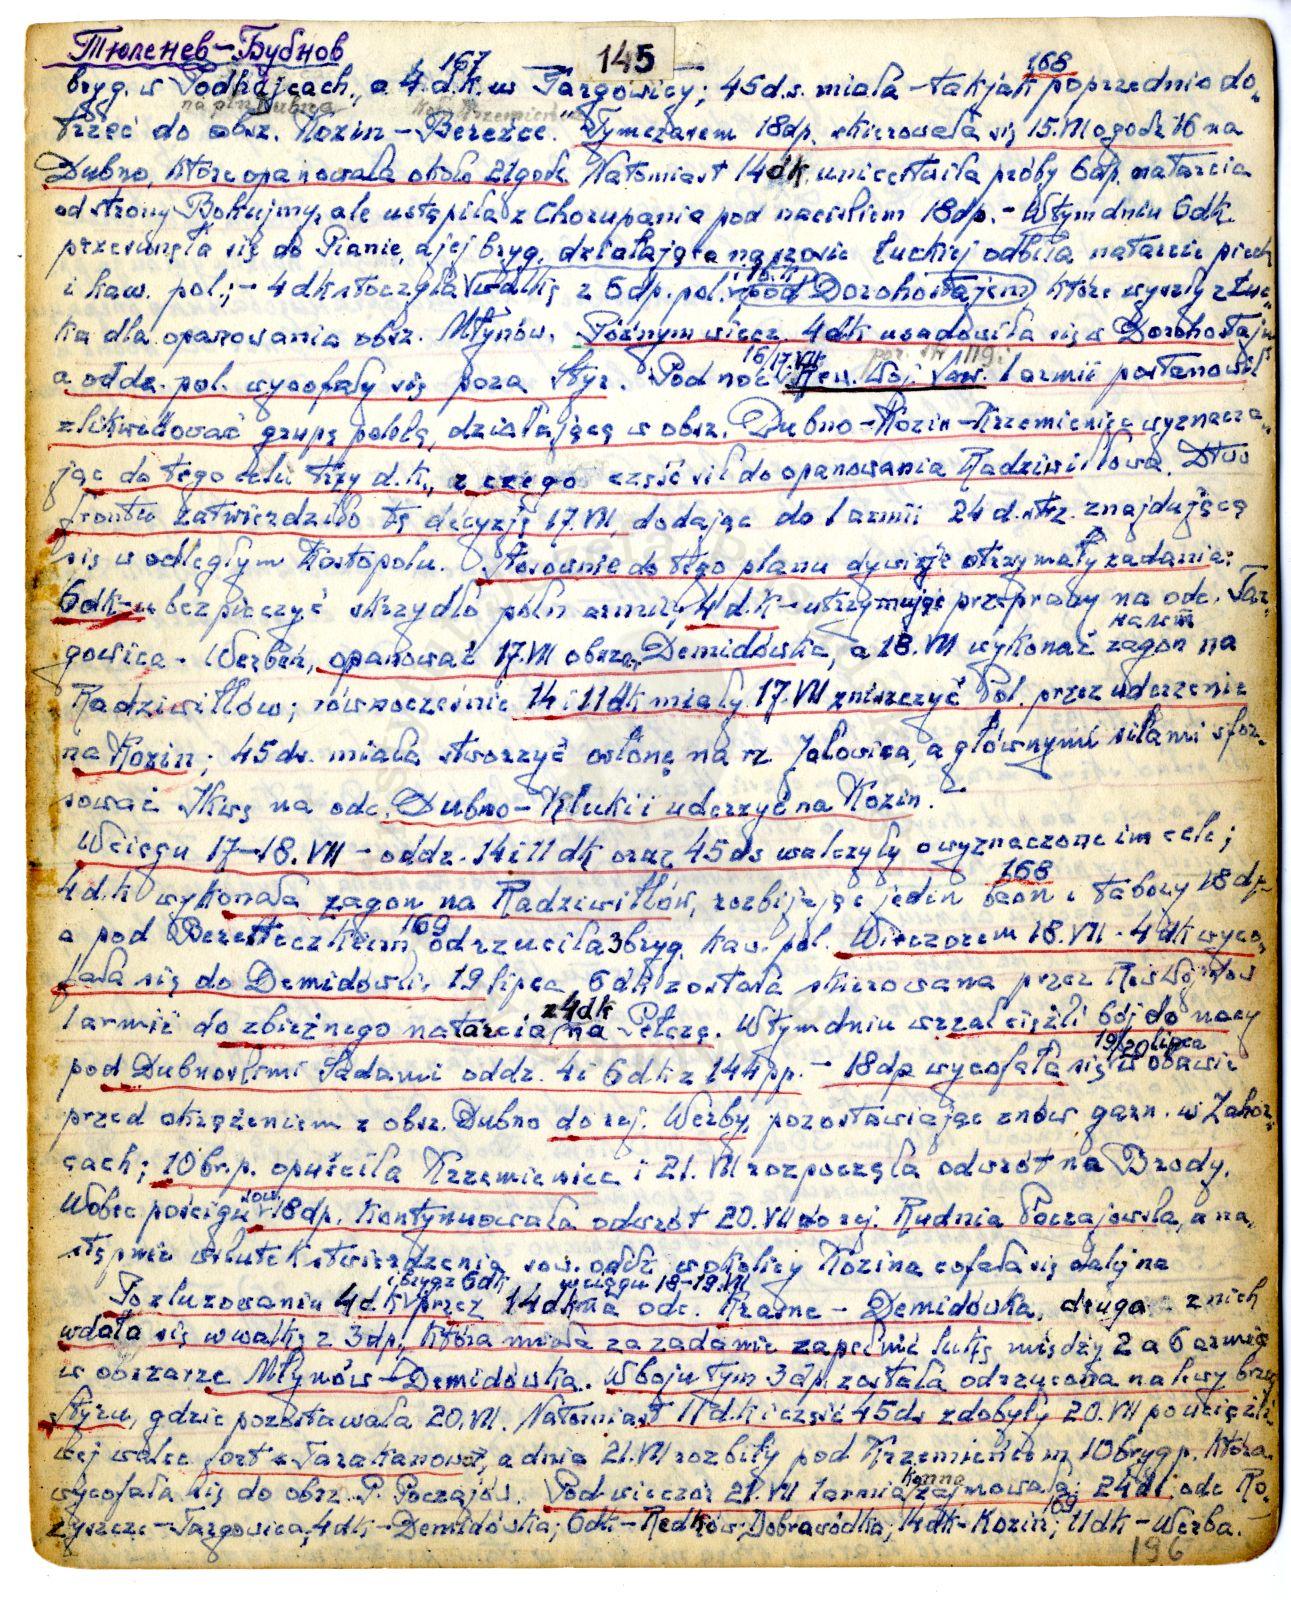 Тюленев-Бубнов
145
167
168
bryg. w Podhajcach, a 4 d.k. w Targowicy; 45 d.s. miała - tak jak poprzednio do-
na płn Dubna
koło Krzemieńca
trzeć do obsz. Kozin - Bereżce. Tymczasem 18dp. skierowała się 15.VII o godz 16 na
Dubno, które opanowała około 21 godz. Natomiast 14 dk. unicestwiła próby 6dp. natarcia
od strony Bokujmy, ale ustąpiła z Chorupania pod naciskiem 18dp. - W tym dniu 6dk.
przesunęła się do Pianie, a jej bryg. działająca na szosie Łuckiej odbiła natarcie piech
i kaw. pol.; - 4 dk stoczyła walkę z 6dp. pol. pod Dorohostajem które wyszły z Łuc-
ka dla opanowania obsz. Młynów. Późnym wiecz. 4dk usadowiła się w Dorohostaju
a oddz. pol. wycofały się poza Styr. Pod noc
16/17.VII
por. str 119.
Rew. Woj. Sow. 1 armii postanowił
zlikwidować grupę polską, działającą w obsz. Dubno - Kozin - Krzemieniec wyznacza-
jąc do tego celu trzy d.k., z czego część sił do opanowania Radziwiłłowa. Dtwo
frontu zatwierdziło tę decyzję 17.VII, dodając do 1 armii 24 d. strz. znajdującą
się w odległym Kostopolu. Stosownie do tego planu dywizje otrzymały zadania:
6dk - ubezpieczyć skrzydło półn armii; 4 d.k - utrzymując przeprawy na odc. Tar-
gowica - Werbeń, opanować 17.VII obsz. Demidówka, a 18.VII wykonać zagon na
Radziwiłłów; równocześnie 14 i 11 dk miały 17.VII zniszczyć Pol. przez uderzenie
na Kozin; 45 ds. miała stworzyć osłonę na rz. Jałowica, a głównymi siłami sfor-
sować Ikwę na odc. Dubno - Kluki i uderzyć na Kozin.
W ciągu 17-18.VII - oddz. 14 i 11 dk oraz 45 ds walczyły o wyznaczone im cele;
168
4 d.k wykonała zagon na Radziwiłłów, rozbijając jeden baon i tabory 18 dp
169
a pod Beresteczkiem odrzuciła 3 bryg. kaw. pol. Wieczorem 18.VII - 4 dk wyco-
fała się do Demidówki. 19 lipca 6 dk została skierowana przez
z 4dk
1 armii do zbieżnego natarcia na Pełczę. W tym dniu wrzał ciężki bój do nocy
19/20 lipca
pod Dubnowskimi Sadami oddz. 4 i 6 dk z 144 pp. - 18 dp wycofała się w obawie
przed okrążeniem z obsz. Dubno do rej. Werby, pozostawiając znów garn. w Zabor-
cach; 10 br.p. opuściła Krzemieniec i 21.VII rozpoczęła odwrót na Brody.
Wobec pościgu
sow.
18dp. kontynuowała odwrót 20.VII do rej. Rudnia Poczajowska, a na-
stępnie wskutek stwierdzenia sow. oddz. w okolicy Kozina cofała się dalej na
i bryg 6dk
w ciągu 18-19.VII
Po zluzowaniu 4 d.k przez 14 dk na odc. Krasne - Demidówka, druga z nich
wdała się w walkę z 3 dp., która miała za zadanie zapełnić lukę między 2 a 6 armią
w obszarze Młynów - Demidówka. W boju tym 3 dp. została odrzucona na lewy brzeg
Styru, gdzie pozostawała 20.VII. Natomiast 11 d.k i część 45 ds zdobyły 20.VII po cięż-
kiej walce fort Tarakanowa, a dnia 21.VII rozbiły pod Krzemieńcem 10 bryg p. która
wycofała się do obsz. P. Poczajów. Pod wieczór 21.VII 1 armia
konna
zajmowała: 24 d: odc Ro-
169
żyszcze - Targowica, 4 dk - Demidówka; 6dk - Redków; Dobrawódka; 14dk - Kozin; 11 dk - Werba.
196